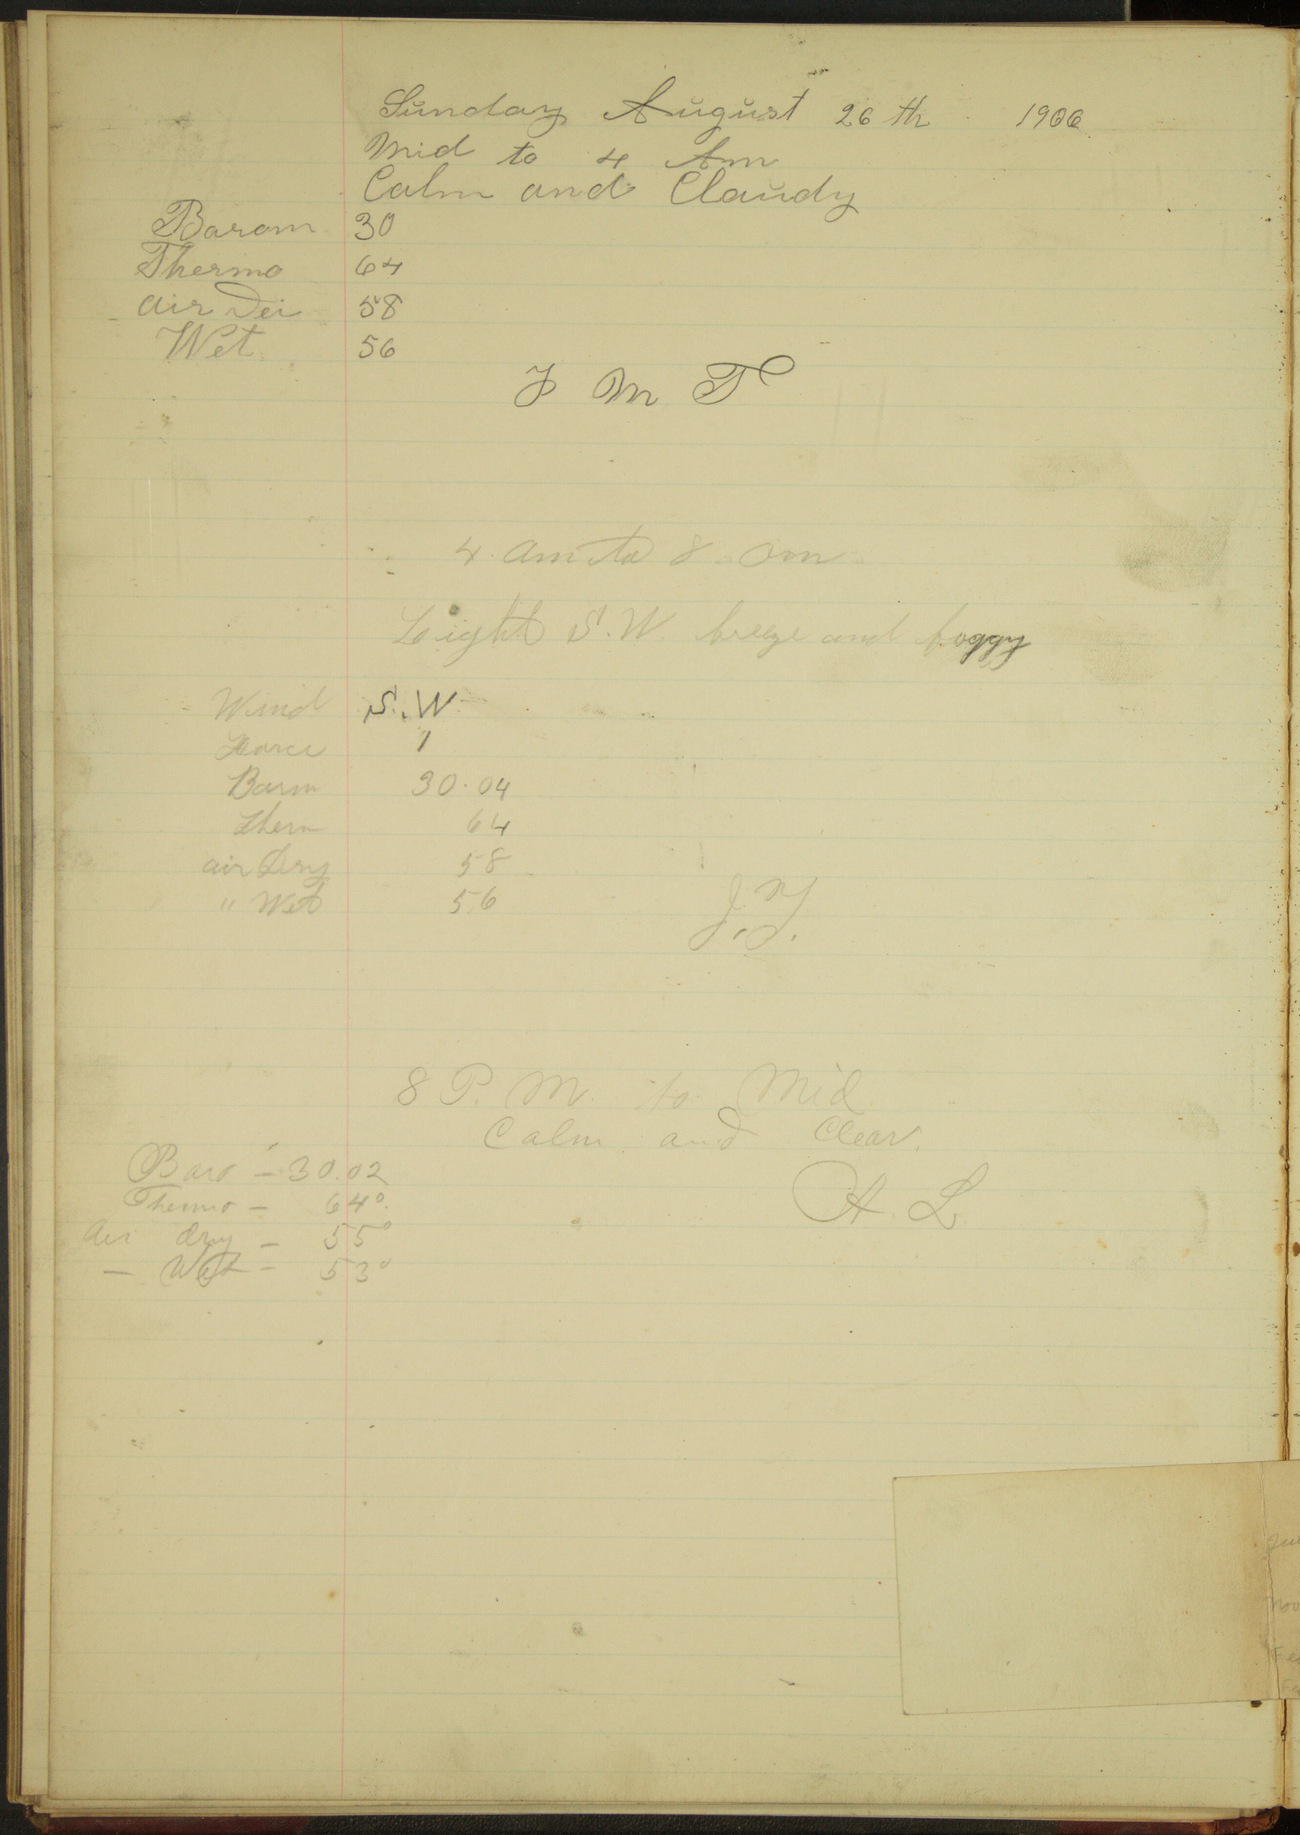 Sunday August 26th 1906
Mid to 4 Am
Calm and Claudy
Barom 30
Thermo 64
air Dei 58
Wet 56
J M T
4 am to 8 am
Light S.W. breeze and foggy
Wind S.W.
Force 1
Barm 30.04
Therm 64
air Dry 58
" Wet 56
J.Y.
8 P.M. to Mid
Calm and Clear.
Baro - 30.02
Thermo - 64°
A. L
Air dry - 55°
- Wet - 53°